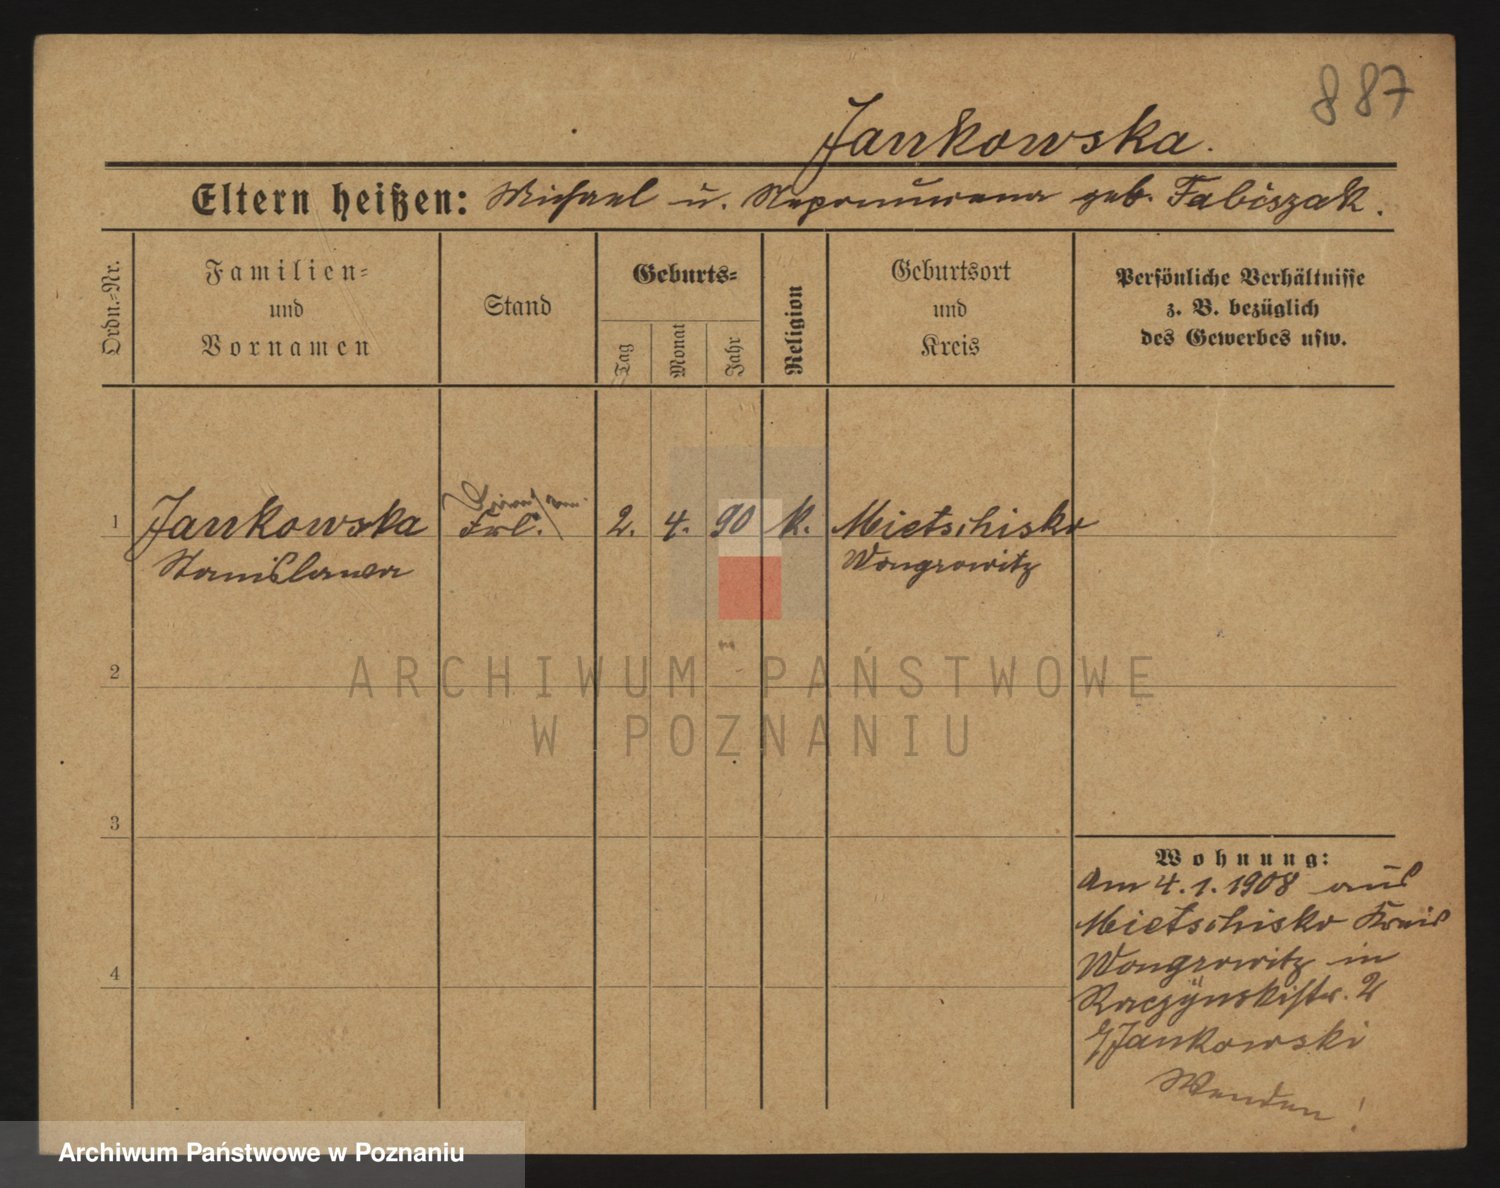 887
Jankowska.
Eltern heißen: Michael u. Nepomucena geb. Fabiszak.
Ordn.-Nr.
Familien-
und
Vornamen
Stand
Geburts-
Tag
Monat
Jahr
Religion
Geburtsort
und
Kreis
Persönliche Verhältnisse
z. B. bezüglich
des Gewerbes usw.
1 Jankowska Frl. 2. 4. 90 k. Mietschisko
Stanislawa Wongrowitz
2
ARCHIWUM PAŃSTWOWE
W POZNANIU
3
Wohnung:
Am 4.1.1908 aus
Mietschisko Kreis
4
Wongrowitz in
Raczynskistr. 2
b/Jankowski
Wenden!
Archiwum Państwowe w Poznaniu